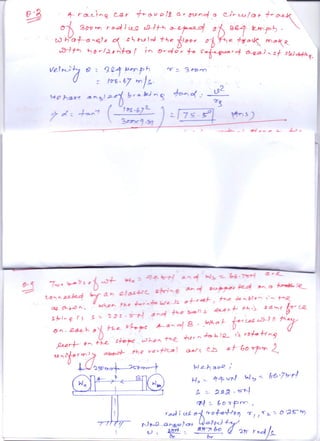 Q.2 A racing car travels around a circular track
of 300m radius with a speed of 384 kmph.
What angle α should the floor of the track make
with horizontal in order to safeguard against skidding.
Velocity v = 384 kmph r = 300m
= 106.67 m/s
we have angle of braking tan α = v²/rg
α = tan⁻¹ (106.67²/300×9.81) = 75.5° Ans)
Two balls of wt and W_b = 66.75N are
connected by an elastic string and supported on a turntable
as shown. When the turntable is at rest, the tension in the
string is S = 222.5N and the balls exert this same force
on each of the stops A and B. What forces will they
exert on the stops when the turn table is rotating
uniformly about the vertical axis CD at 60 rpm?
25mm 25mm
A B
We have;
W_b = 66.75N
S = 222.5N
n = 60 rpm.
radius of rotation r₁, r₂ = 0.25m
Angular velocity
2π rad/s
60